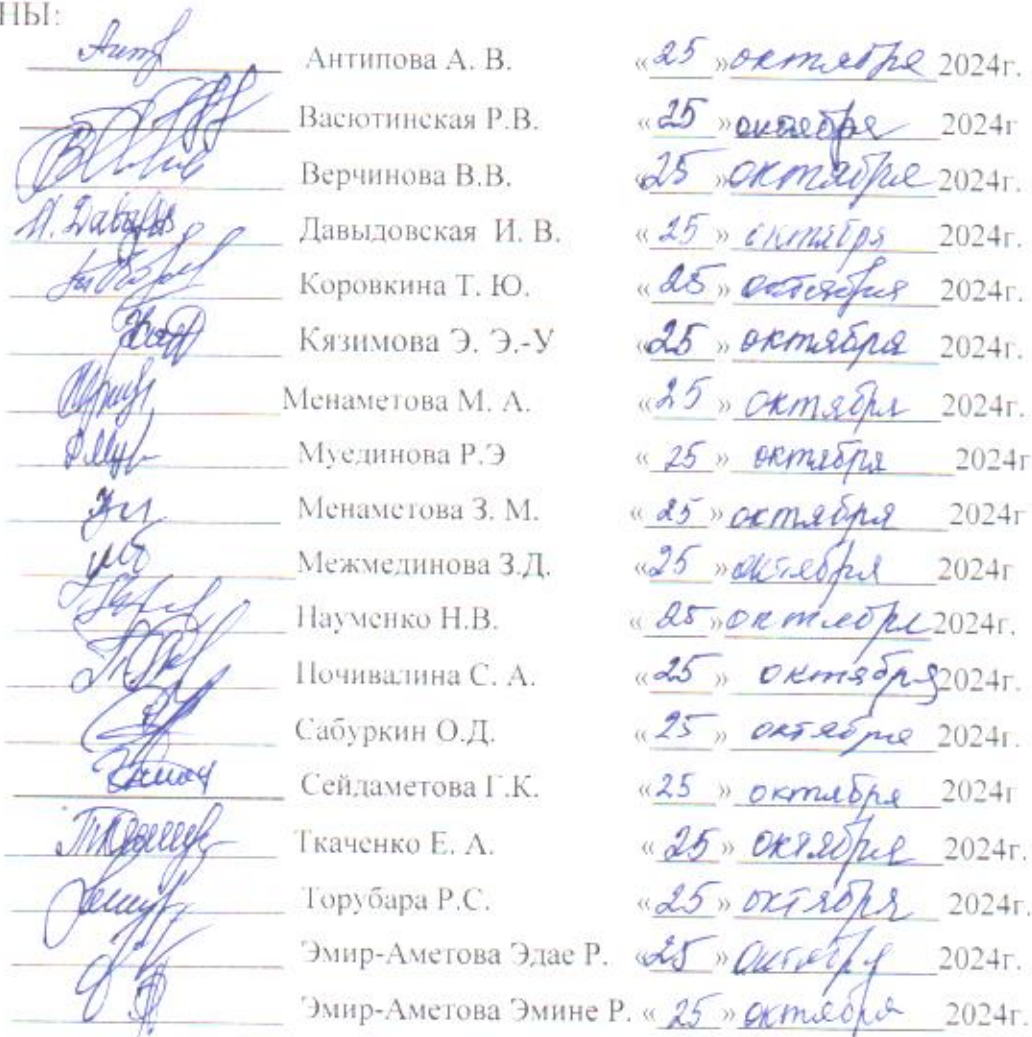 НЫ:
Антипова А. В. «25» октября 2024г.
Васютинская Р.В. «25» октября 2024г
Верчинова В.В. «25» октября 2024г.
И. Давыдов Давыдовская И. В. «25» октября 2024г.
Коровкина Т. Ю. «25» октября 2024г.
Кязимова Э. Э.-У «25» октября 2024г.
Менаметова М. А. «25» октября 2024г.
Муединова Р.Э «25» октября 2024г
Менаметова З. М. «25» октября 2024г
Межмединова З.Д. «25» октября 2024г
Науменко Н.В. «25» октября 2024г.
Почивалина С. А. «25» октября 2024г.
Сабуркин О.Д. «25» октября 2024г.
Сейдаметова Г.К. «25» октября 2024г
Ткаченко Е. А. «25» октября 2024г.
Торубара Р.С. «25» октября 2024г.
Эмир-Аметова Эдае Р. «25» октября 2024г.
Эмир-Аметова Эмине Р. «25» октября 2024г.